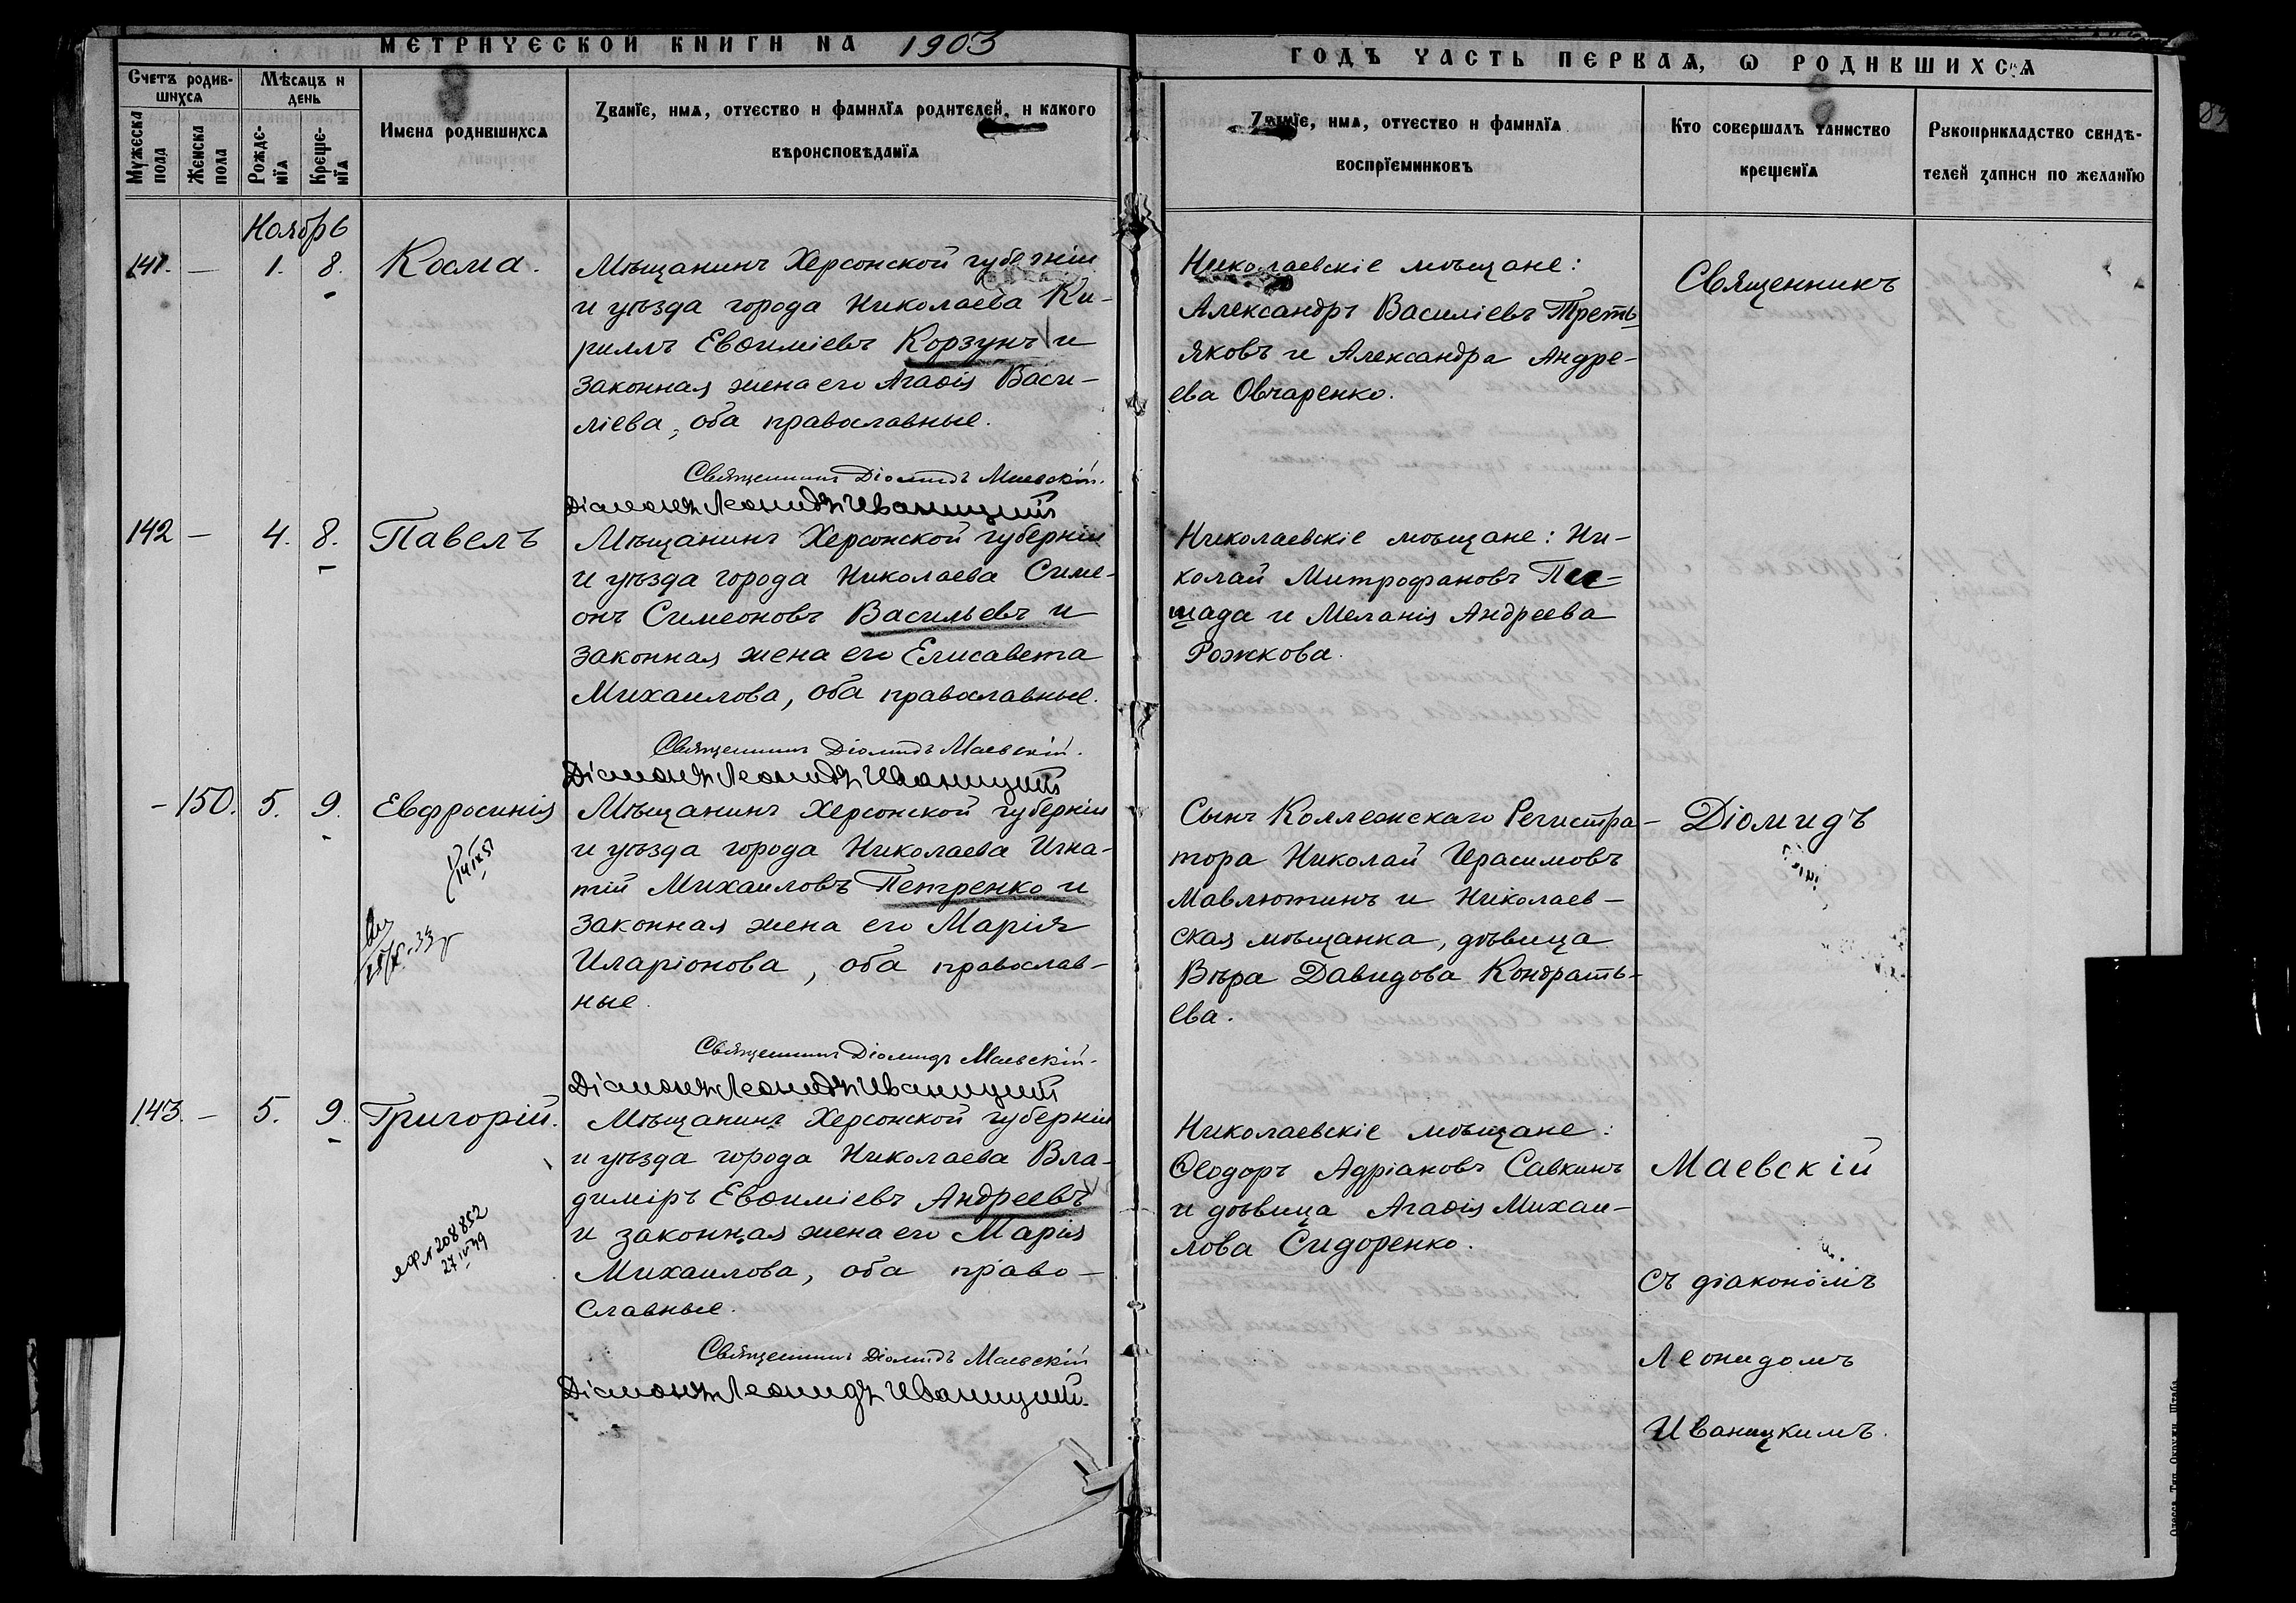 МЕТРИЧЕСКОЙ КНИГИ НА 1903
ГОДЪ ЧАСТЬ ПЕРВАЯ, Ѡ РОДИВШИХСЯ
Счетъ родив-
шихся
Мѣсяцъ и
день
Мужеска
пола
Женска
пола
Рожде-
нїя
Креще-
нїя
Имена родившихся
Званїе, имя, отчество и фамилїя родителей, и какого
вѣроисповѣданїя
Званїе, имя, отчество и фамилїя
воспрїемниковъ
Кто совершалъ таинство
крещенїя
Рукоприкладство свидѣ-
телей записи по желанїю
Ноябрь
141. — 1. 8. Косма.
Мѣщанинъ Херсонской губернiи
и уѣзда города Николаева Ки-
риллъ Евѳимiевъ Корзунъ и
законная жена его Агаѳiя Васи-
лiева, оба православные.
Священникъ Дiомидъ Маевскiй.
Дiаконъ Леонидъ Иваницкiй
Николаевскiе мѣщане:
Александръ Василiевъ Треть-
яковъ и Александра Андре-
ева Овчаренко.
142 — 4. 8. Павелъ
Мѣщанинъ Херсонской губернiи
и уѣзда города Николаева Симе-
онъ Симеоновъ Васильевъ и
законная жена его Елисавета
Михаилова, оба православные.
Священникъ Дiомидъ Маевскiй.
Дiаконъ Леонидъ Иваницкiй
Николаевскiе мѣщане: Ни-
колай Митрофановъ
и Меланiя Андреева
Рожкова.
— 150. 5. 9. Евфросинiя
14 IX 51
Мѣщанинъ Херсонской губернiи
и уѣзда города Николаева Игна-
тiй Михаиловъ Петренко и
законная жена его Марiя
Иларiонова, оба православ-
ные.
Священникъ Дiомидъ Маевскiй.
Дiаконъ Леонидъ Иваницкiй
Сынъ Коллежскаго Регистра-
тора Николай Герасимовъ
Мавлютинъ и Николаев-
ская мѣщанка, дѣвица
Вѣра Давидова Кондрать-
ева.
143. — 5. 9. Григорiй.
ЯФ № 208852
27 IV 49
Мѣщанинъ Херсонской губернiи
и уѣзда города Николаева Вла-
димiръ Евѳимiевъ Андреевъ
и законная жена его Марiя
Михаилова, оба право-
славные.
Священникъ Дiомидъ Маевскiй
Дiаконъ Леонидъ Иваницкiй.
Николаевскiе мѣщане:
Ѳеодоръ Адрiановъ Савкинъ
и дѣвица Агаѳiя Михаи-
лова Сидоренко.
Священникъ
Дiомидъ
Маевскiй
съ дiакономъ
Леонидомъ
Иваницкимъ.